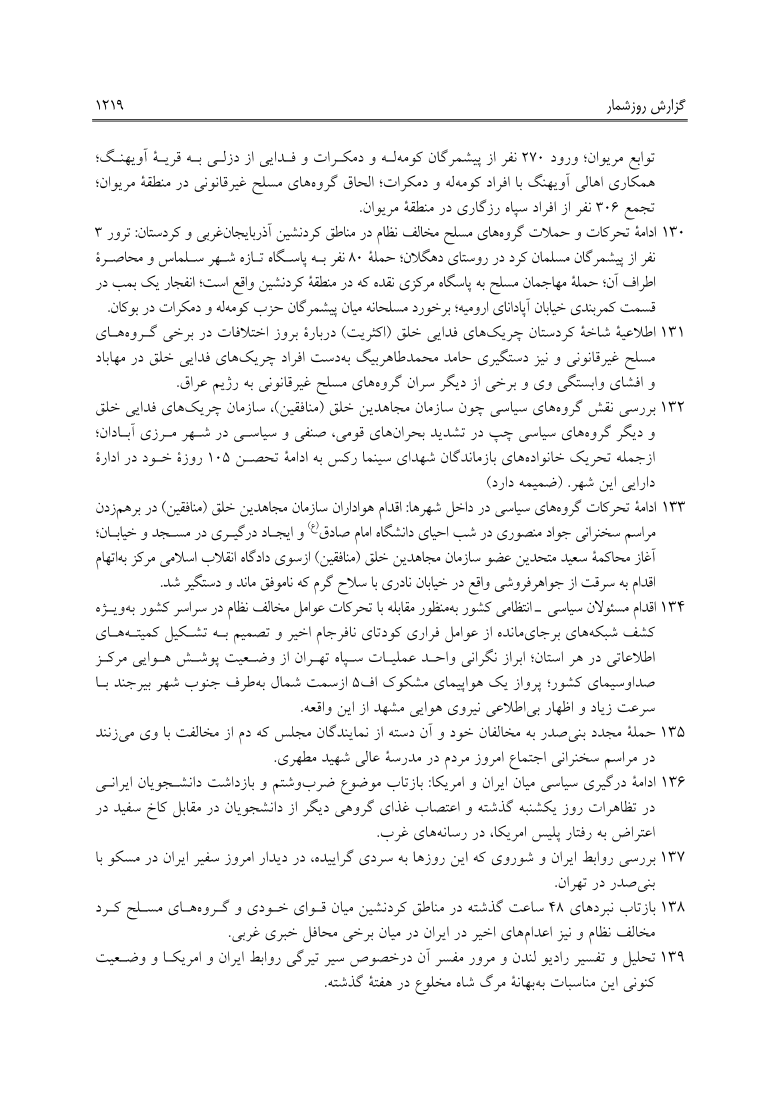 گزارش روزشمار ۱۲۱۹
توابع مریوان؛ ورود ۲۷۰ نفر از پیشمرگان کومه‌له و دمکرات و فدایی از دزلی به قریهٔ آویهنگ؛
همکاری اهالی آویهنگ با افراد کومه‌له و دمکرات؛ الحاق گروه‌های مسلح غیرقانونی در منطقهٔ مریوان؛
تجمع ۳۰۶ نفر از افراد سپاه رزگاری در منطقهٔ مریوان.
۱۳۰ ادامهٔ تحرکات و حملات گروه‌های مسلح مخالف نظام در مناطق کردنشین آذربایجان‌غربی و کردستان: ترور ۳
نفر از پیشمرگان مسلمان کرد در روستای دهگلان؛ حملهٔ ۸۰ نفر به پاسگاه تازه شهر سلماس و محاصرهٔ
اطراف آن؛ حملهٔ مهاجمان مسلح به پاسگاه مرکزی نقده که در منطقهٔ کردنشین واقع است؛ انفجار یک بمب در
قسمت کمربندی خیابان آپادانای ارومیه؛ برخورد مسلحانه میان پیشمرگان حزب کومه‌له و دمکرات در بوکان.
۱۳۱ اطلاعیهٔ شاخهٔ کردستان چریک‌های فدایی خلق (اکثریت) دربارهٔ بروز اختلافات در برخی گروه‌های
مسلح غیرقانونی و نیز دستگیری حامد محمدطاهربیگ به‌دست افراد چریک‌های فدایی خلق در مهاباد
و افشای وابستگی وی و برخی از دیگر سران گروه‌های مسلح غیرقانونی به رژیم عراق.
۱۳۲ بررسی نقش گروه‌های سیاسی چون سازمان مجاهدین خلق (منافقین)، سازمان چریک‌های فدایی خلق
و دیگر گروه‌های سیاسی چپ در تشدید بحران‌های قومی، صنفی و سیاسی در شهر مرزی آبادان؛
ازجمله تحریک خانواده‌های بازماندگان شهدای سینما رکس به ادامهٔ تحصن ۱۰۵ روزهٔ خود در ادارهٔ
دارایی این شهر. (ضمیمه دارد)
۱۳۳ ادامهٔ تحرکات گروه‌های سیاسی در داخل شهرها: اقدام هواداران سازمان مجاهدین خلق (منافقین) در برهم‌زدن
مراسم سخنرانی جواد منصوری در شب احیای دانشگاه امام صادق(ع) و ایجاد درگیری در مسجد و خیابان؛
آغاز محاکمهٔ سعید متحدین عضو سازمان مجاهدین خلق (منافقین) ازسوی دادگاه انقلاب اسلامی مرکز به‌اتهام
اقدام به سرقت از جواهرفروشی واقع در خیابان نادری با سلاح گرم که ناموفق ماند و دستگیر شد.
۱۳۴ اقدام مسئولان سیاسی ـ انتظامی کشور به‌منظور مقابله با تحرکات عوامل مخالف نظام در سراسر کشور به‌ویژه
کشف شبکه‌های برجای‌مانده از عوامل فراری کودتای نافرجام اخیر و تصمیم به تشکیل کمیته‌های
اطلاعاتی در هر استان؛ ابراز نگرانی واحد عملیات سپاه تهران از وضعیت پوشش هوایی مرکز
صداوسیمای کشور؛ پرواز یک هواپیمای مشکوک اف۵ ازسمت شمال به‌طرف جنوب شهر بیرجند با
سرعت زیاد و اظهار بی‌اطلاعی نیروی هوایی مشهد از این واقعه.
۱۳۵ حملهٔ مجدد بنی‌صدر به مخالفان خود و آن دسته از نمایندگان مجلس که دم از مخالفت با وی می‌زنند
در مراسم سخنرانی اجتماع امروز مردم در مدرسهٔ عالی شهید مطهری.
۱۳۶ ادامهٔ درگیری سیاسی میان ایران و امریکا: بازتاب موضوع ضرب‌وشتم و بازداشت دانشجویان ایرانی
در تظاهرات روز یکشنبه گذشته و اعتصاب غذای گروهی دیگر از دانشجویان در مقابل کاخ سفید در
اعتراض به رفتار پلیس امریکا، در رسانه‌های غرب.
۱۳۷ بررسی روابط ایران و شوروی که این روزها به سردی گراییده، در دیدار امروز سفیر ایران در مسکو با
بنی‌صدر در تهران.
۱۳۸ بازتاب نبردهای ۴۸ ساعت گذشته در مناطق کردنشین میان قوای خودی و گروه‌های مسلح کرد
مخالف نظام و نیز اعدام‌های اخیر در ایران در میان برخی محافل خبری غربی.
۱۳۹ تحلیل و تفسیر رادیو لندن و مرور مفسر آن درخصوص سیر تیرگی روابط ایران و امریکا و وضعیت
کنونی این مناسبات به‌بهانهٔ مرگ شاه مخلوع در هفتهٔ گذشته.